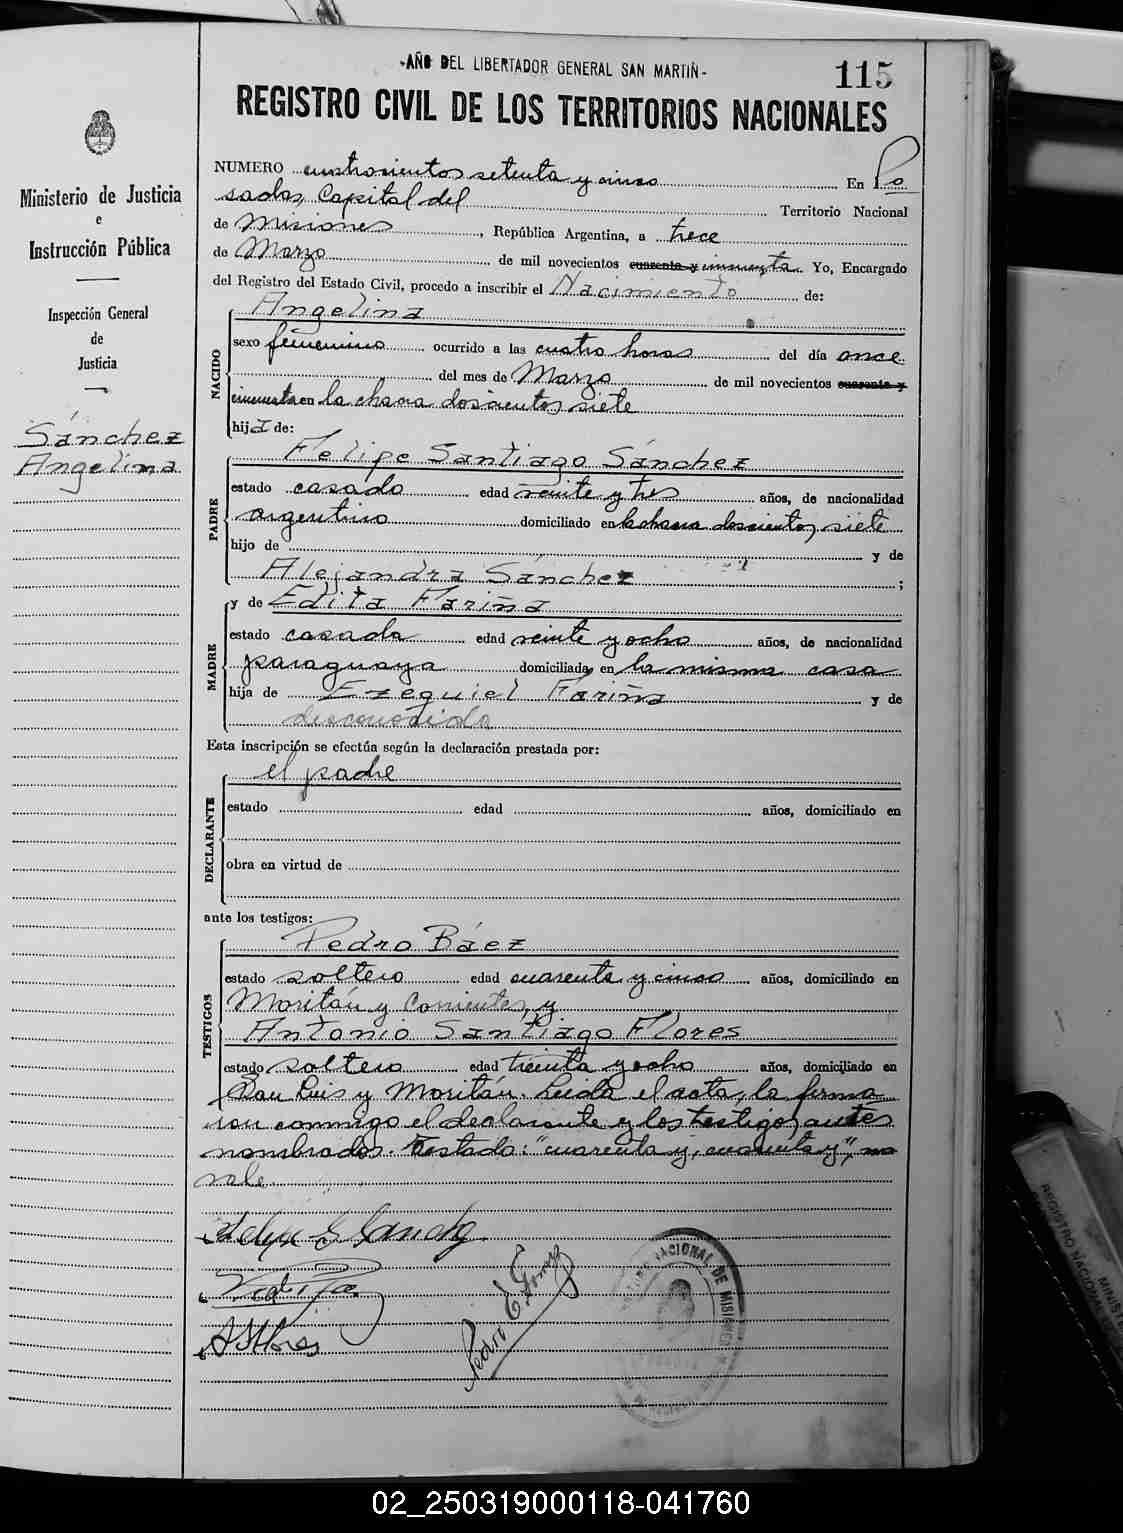 -AÑO DEL LIBERTADOR GENERAL SAN MARTIN-
115
REGISTRO CIVIL DE LOS TERRITORIOS NACIONALES
Ministerio de Justicia
e
Instrucción Pública
Inspección General
de
Justicia
Sánchez
Angelina
NUMERO cuatrocientos setenta y cinco En Po
sadas, Capital del Territorio Nacional
de Misiones, República Argentina, a trece
de Marzo de mil novecientos cuarenta y cincuenta. Yo, Encargado
del Registro del Estado Civil, procedo a inscribir el Nacimiento de:
Angelina
NACIDO
sexo femenino ocurrido a las cuatro horas del día once
del mes de Marzo de mil novecientos cuarenta y
cincuenta en la chacra doscientos siete
hija de:
Felipe Santiago Sánchez
PADRE
estado casado edad veinte y tres años, de nacionalidad
argentino domiciliado en la chacra doscientos siete
hijo de y de
Alejandra Sánchez ;
y de Edita Fariña
MADRE
estado casada edad veinte y ocho años, de nacionalidad
paraguaya domiciliada en la misma casa
hija de Ezequiel Fariña y de
desconocida
Esta inscripción se efectúa según la declaración prestada por:
el padre
DECLARANTE
estado edad años, domiciliado en
obra en virtud de
ante los testigos:
Pedro Báez
TESTIGOS
estado soltero edad cuarenta y cinco años, domiciliado en
Moritán y Corrientes, y
Antonio Santiago Flores
estado soltero edad treinta y ocho años, domiciliado en
San Luis y Moritán. Leida el acta, la firma
ron conmigo el declarante y los testigos antes
nombrados. Testado: "cuarenta y, cuarenta y", no
vale.
Pedro E. Gomez
ASFlores
NACIONAL DE MISIONES
02_250319000118-041760